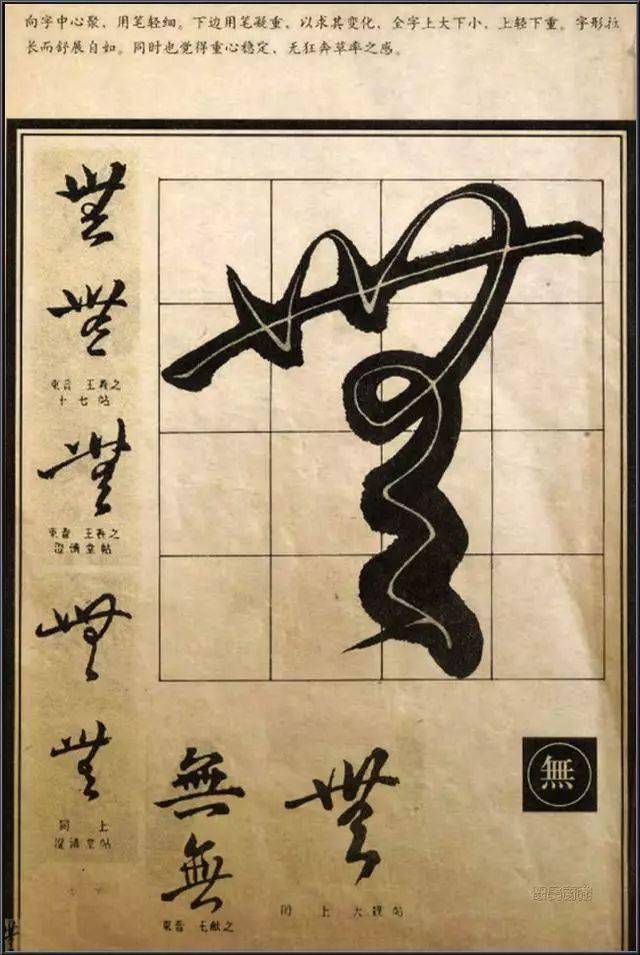 向字中心聚、用笔轻细。下边用笔凝重、以求其变化、全字上大下小、上轻下重。字形拉
长而舒展自如。同时也觉得重心稳定、无狂奔草率之感。
無
無
東晋 王羲之
十七帖
無
東晋 王羲之
澄清堂帖
無
無
同上
澄清堂帖
無
無
無
東晋 王献之
無
同上 大觀帖
無